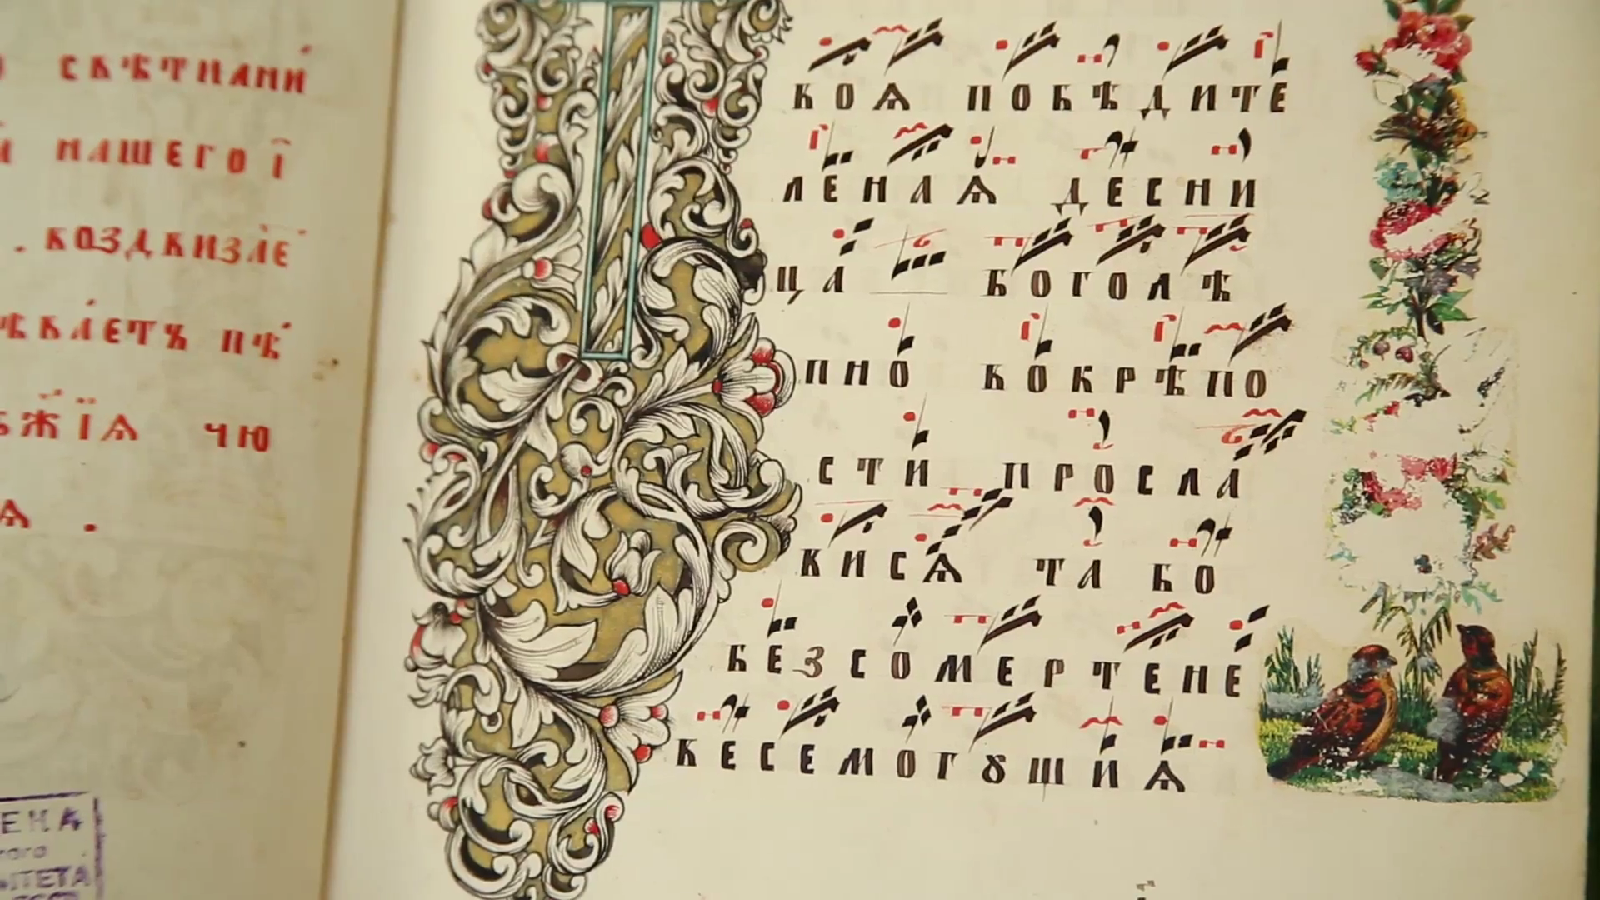 свѣтлами
нашего і
. воздвизае
ваетъ пѣ
бжїѧ чю
ѧ .
Т
воѧ побѣдите
ленаѧ десни
ца боголѣ
пно во крѣпо
сти просла
висѧ та бо
безсомертене
весемогꙋщиѧ
ЕНА
ИТЕТА